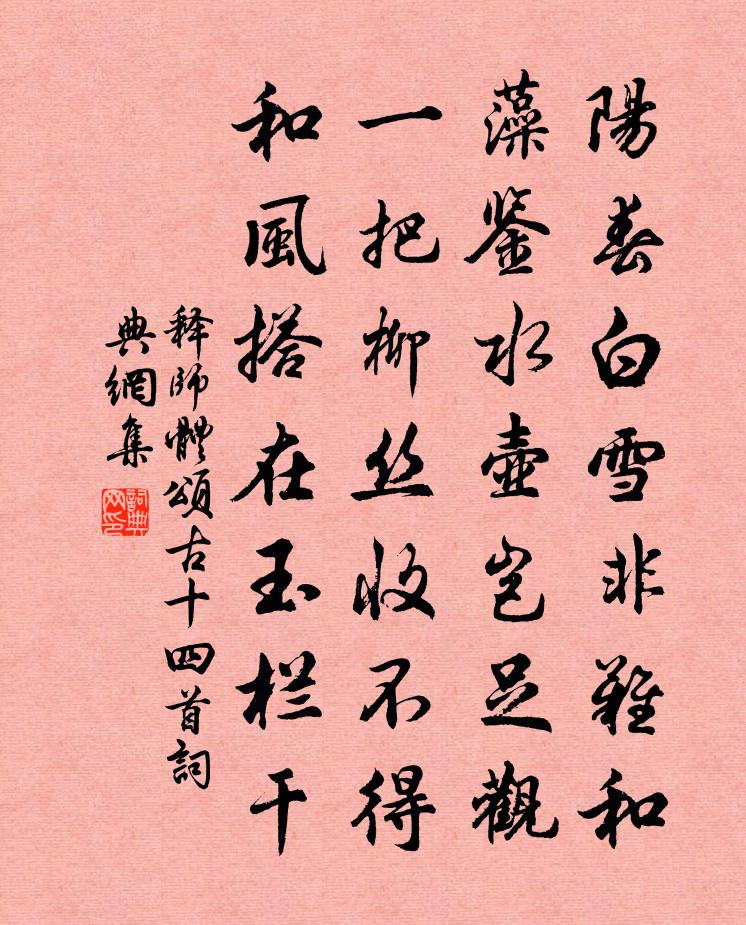 陽春白雪非難和
藻鉴水壺岂足觀
一把柳丝收不得
和風搭在玉栏干
释師體頌古十四首詞
典網集
詞典网印